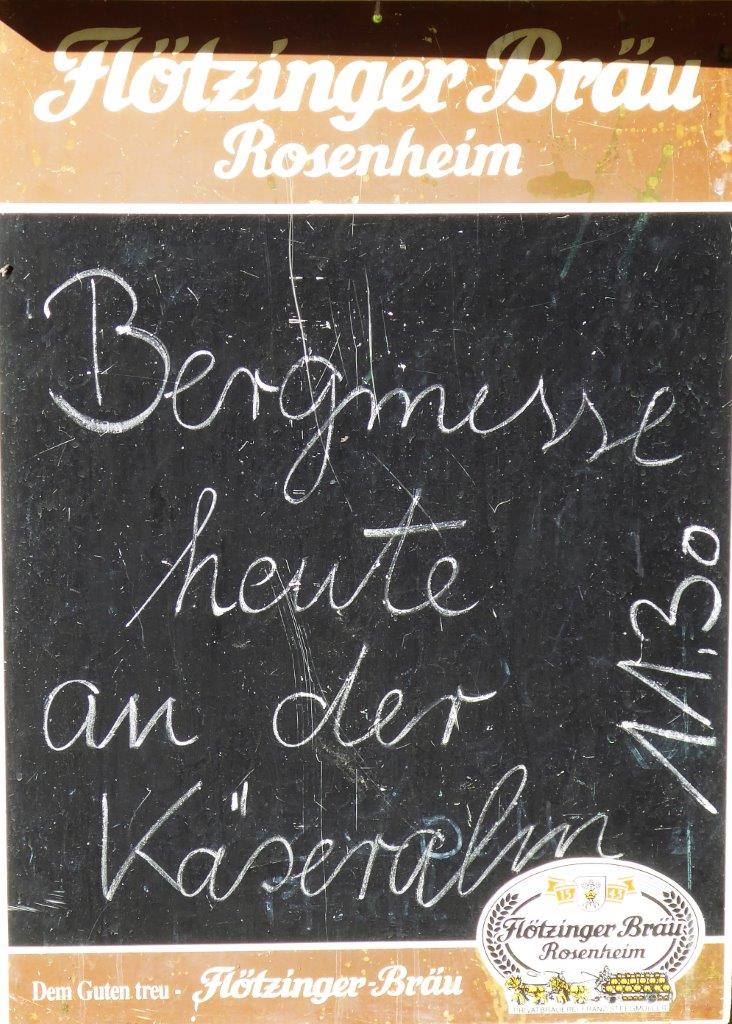 Flötzinger Bräu
Rosenheim
Bergmesse
heute
an der
Käseralm
11,30
Dem Guten treu - Flötzinger-Bräu
15 43
Flötzinger Bräu
Rosenheim
PRIVATBRAUEREI FRANZ STEEGMÜLLER